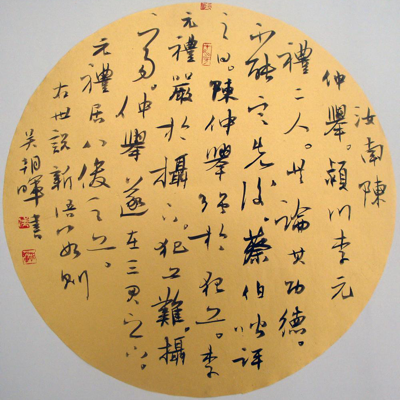 汝南陳
仲舉。潁川李元
禮二人。共論其功德。
不能定先後。蔡伯喈評
之曰。陳仲舉强於犯上。李
元禮嚴於攝下。犯上難。攝
下易。仲舉遂在三君之下。
元禮居八俊之上。
右世説新語 則
吴朝暉書